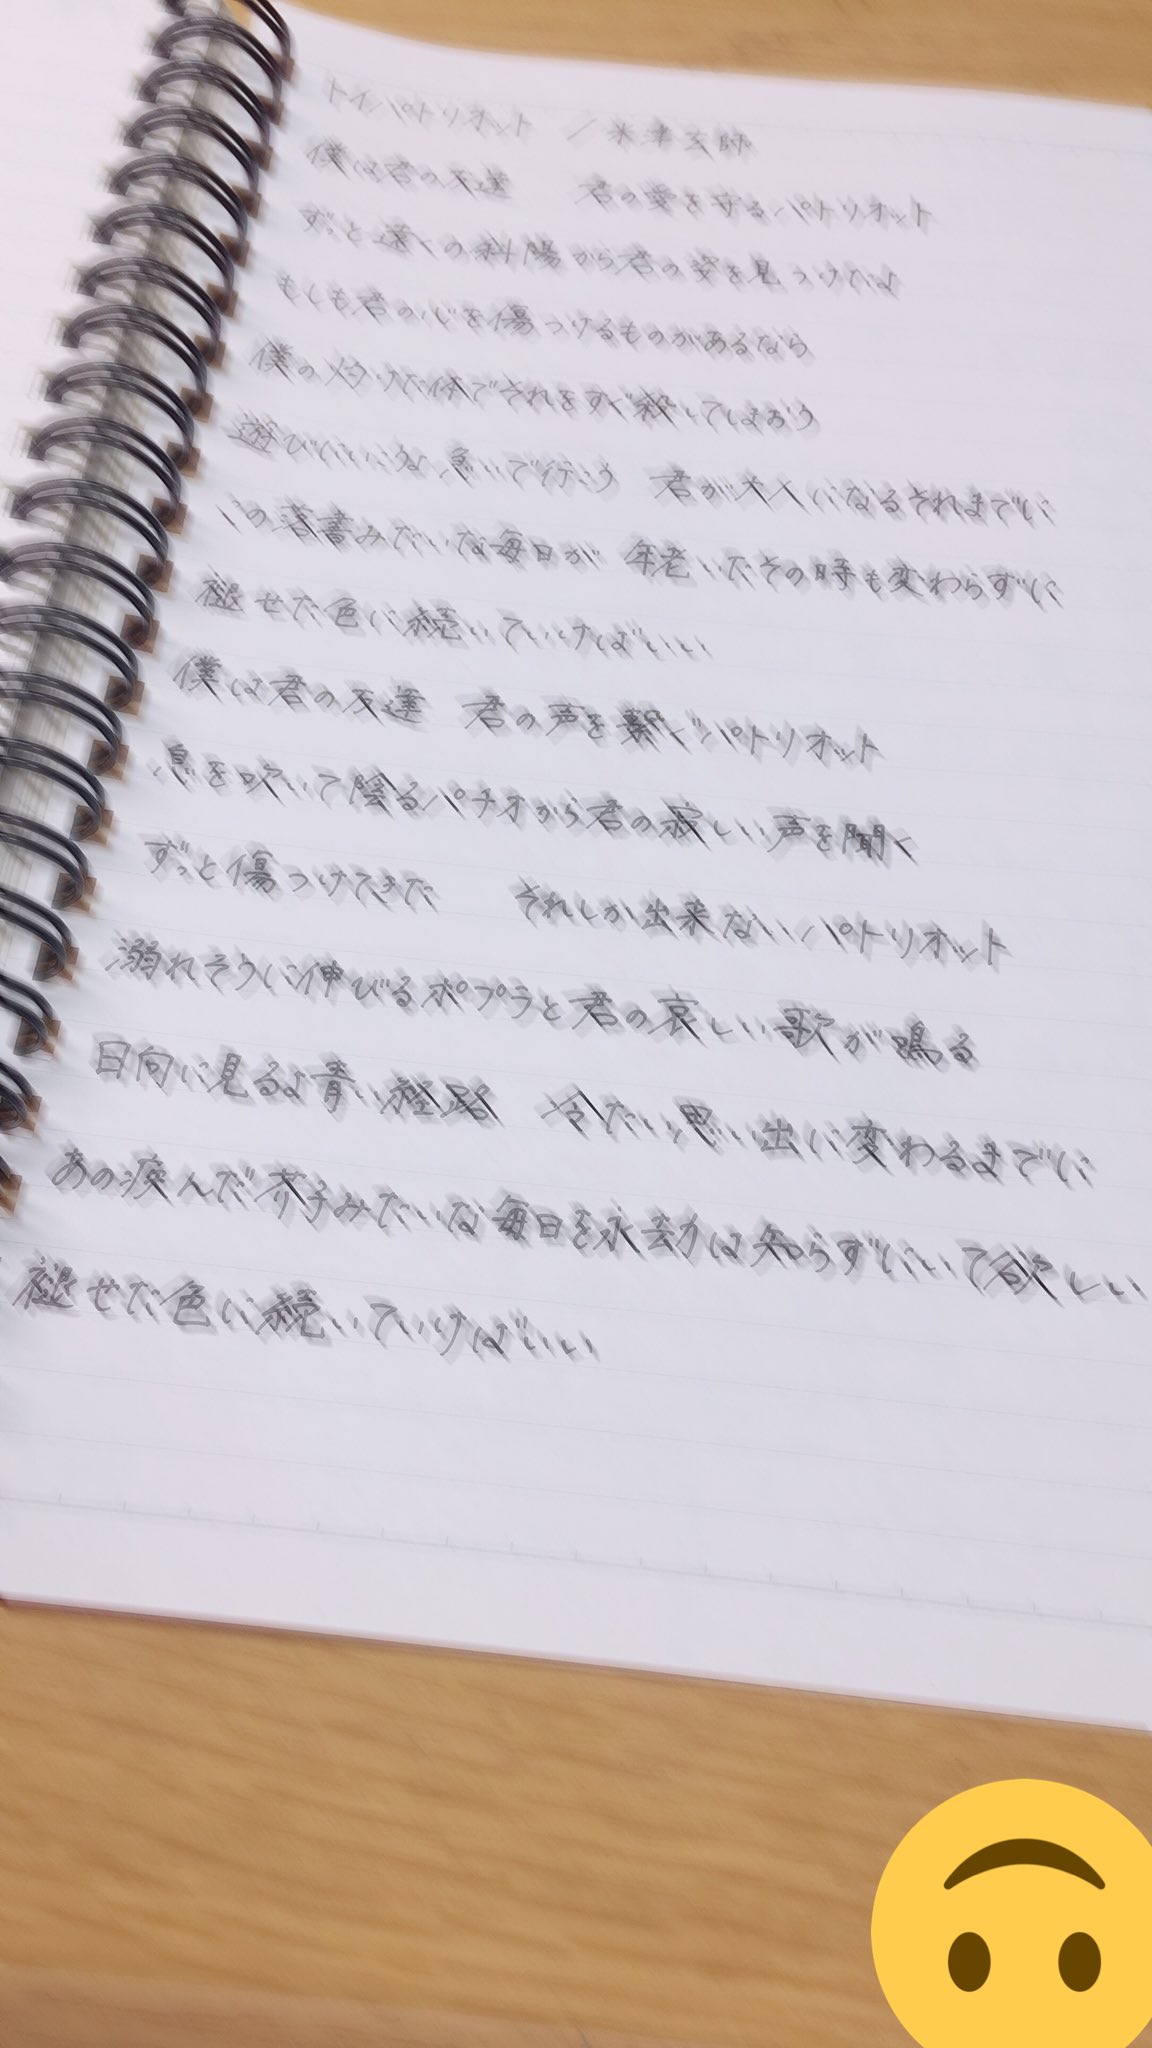 トイパトリオット ／米津玄師
僕は君の友達 君の愛を守るパトリオット
ずっと遠くの斜陽から君の姿を見つけたよ
もしも君の心を傷つけるものがあるなら
僕の灼けた体でそれをすぐ殺してしまおう
遊びにいこうよ 急いで行こう 君が大人になるそれまでに
この落書みたいな毎日が 年老いたその時も変わらずに
褪せた色に続いていけばいい
僕は君の友達 君の声を繋ぐパトリオット
息を吹いて陰るパチオから君の寂しい声を聞く
ずっと傷つけてきた それしか出来ないパトリオット
溺れそうに伸びるポプラと君の哀しい歌が鳴る
日向に見るよ青い経路 冷たい思い出に変わるまでに
あの痰んだ芥子みたいな毎日を永劫は知らずにいて欲しい
褪せた色に続いていけばいい